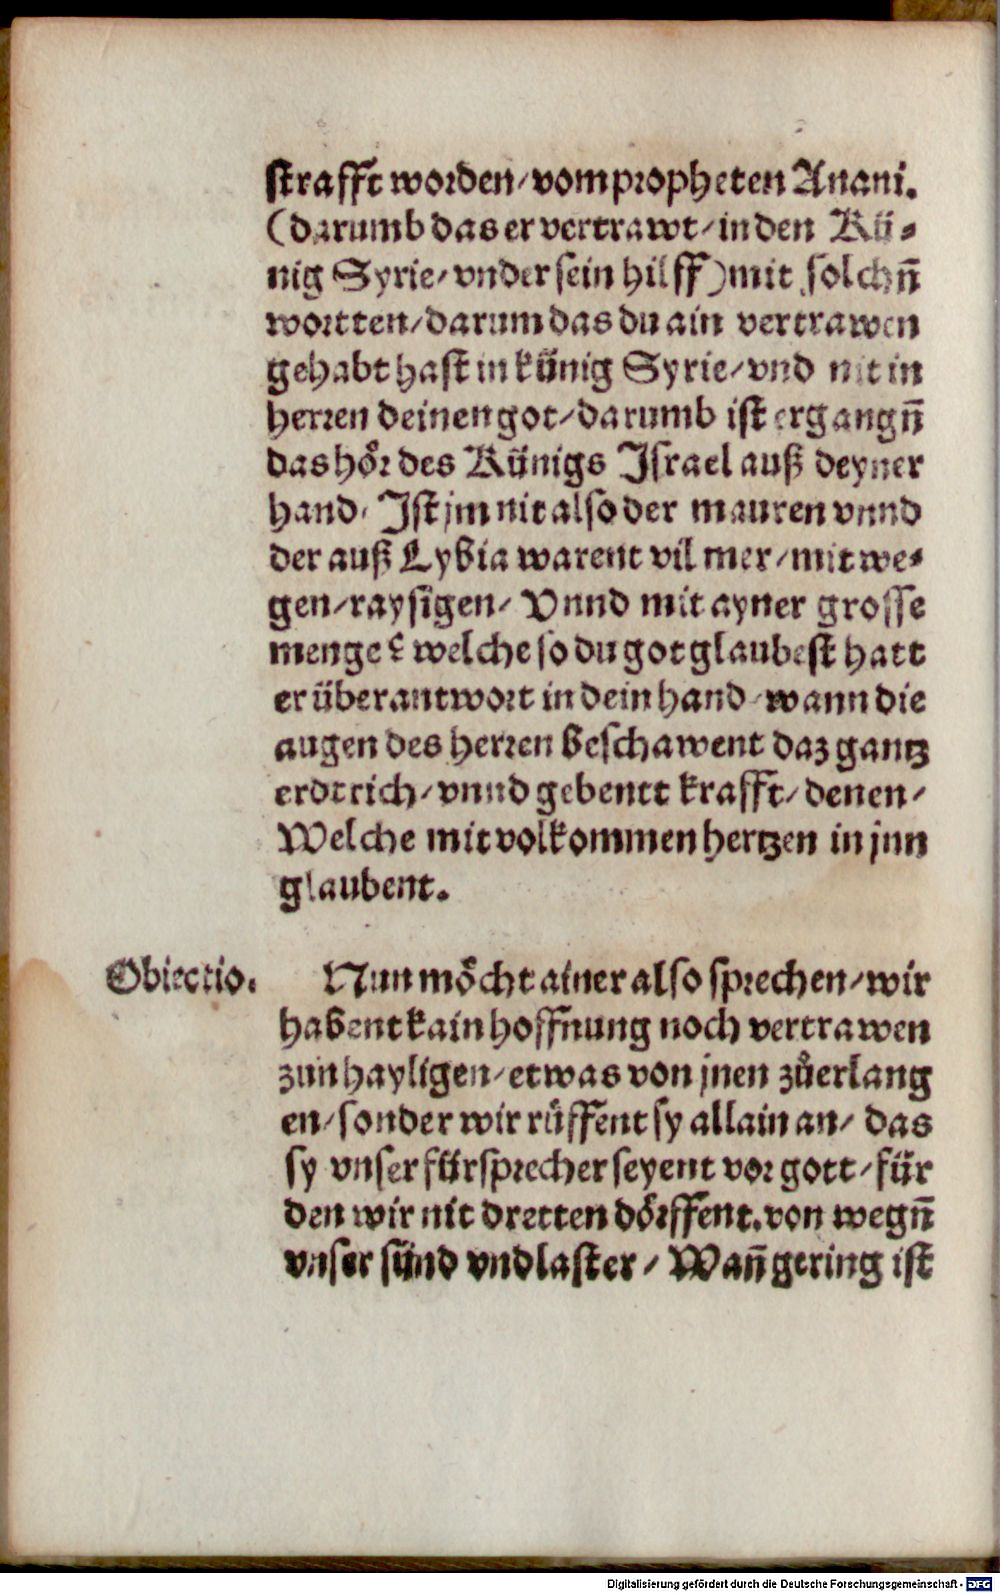 strafft worden/vom propheten Anani.
(darumb das er vertrawt/in den Kü⸗
nig Syrie/vnder sein hilff) mit solchñ
wortten/darum das du ain vertrawen
gehabt hast in künig Syrie/vnd nit in
herren deinen got/darumb ist ergangñ
das hör des Künigs Israel auß deyner
hand. Ist jm nit also der mauren vnnd
der auß Lybia warent vil mer/mit we⸗
gen/raysigen/Vnnd mit ayner grosse
menge? welche so du got glaubest hatt
er überantwort in dein hand/wann die
augen des herren beschawent daz gantz
erdtrich/vnnd gebentt krafft/denen/
Welche mit volkommen hertzen in jnn
glaubent.
Obiectio.
Nun möcht ainer also sprechen/wir
habent kain hoffnung noch vertrawen
zun hayligen/etwas von jnen zůerlang
en/sonder wir rüffent sy allain an/das
sy vnser fürsprecher seyent vor gott/für
den wir nit dretten dörffent.von wegñ
vnser sünd vnd laster/Wañ gering ist
Digitalisierung gefördert durch die Deutsche Forschungsgemeinschaft - DFG